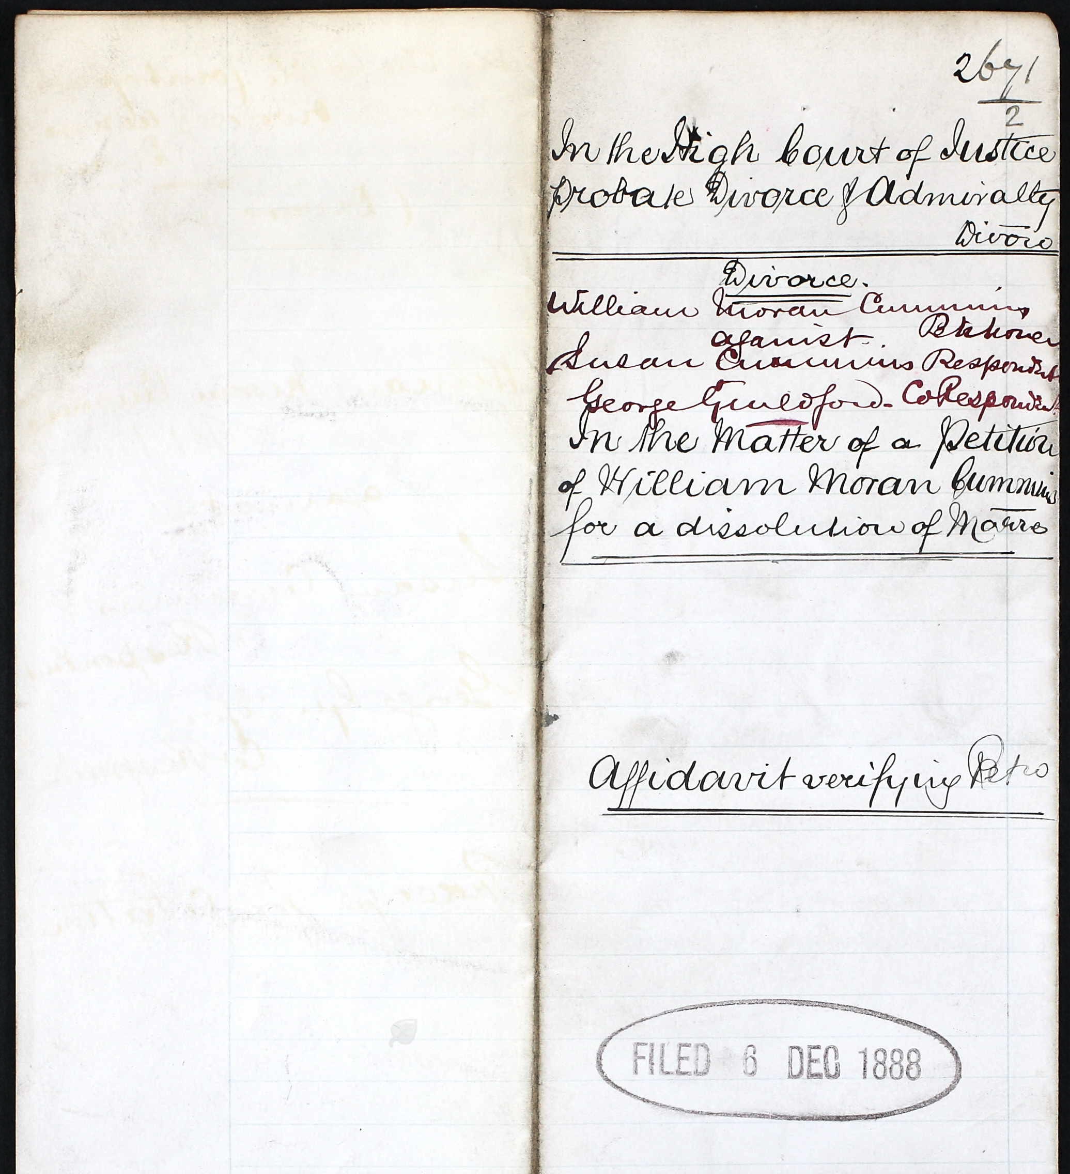 2671
2
In the High Court of Justice
Probate Divorce & Admiralty
Divon
Divorce.
William Moran Cummins
Petitioner
against
Susan Cummins Respondent
George Guildford. CoRespondent
In the Matter of a Petition
of William Moran Cummins
for a dissolution of Marre
Affidavit verifying Petn
FILED 6 DEC 1888